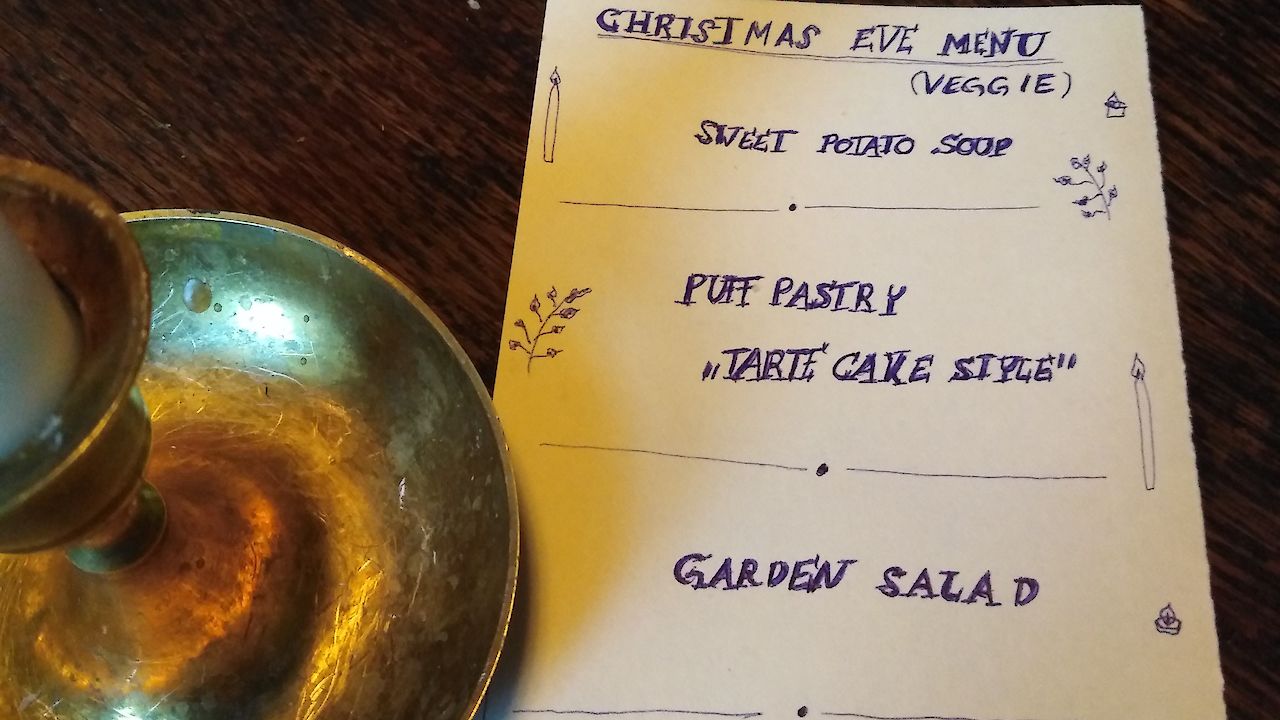 CHRISTMAS EVE MENU
(VEGGIE)
SWEET POTATO SOUP
PUFF PASTRY
„TARTE CAKE STYLE"
GARDEN SALAD